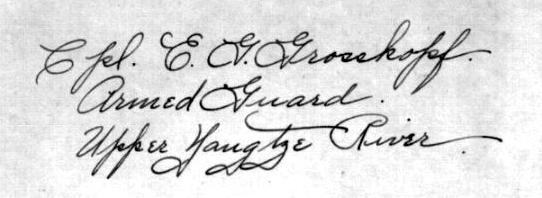 Cpl. E. G. Grosskopf.
Armed Guard.
Upper Yangtze River.